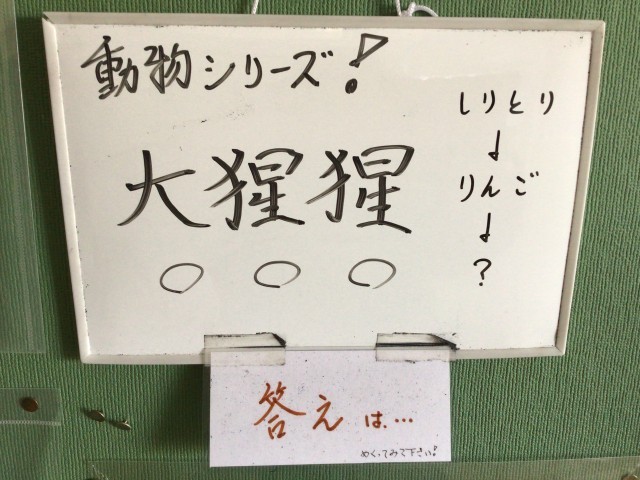 動物シリーズ!
大猩猩
○○○
しりとり
↓
りんご
↓
?
答えは…
めくってみて下さい!